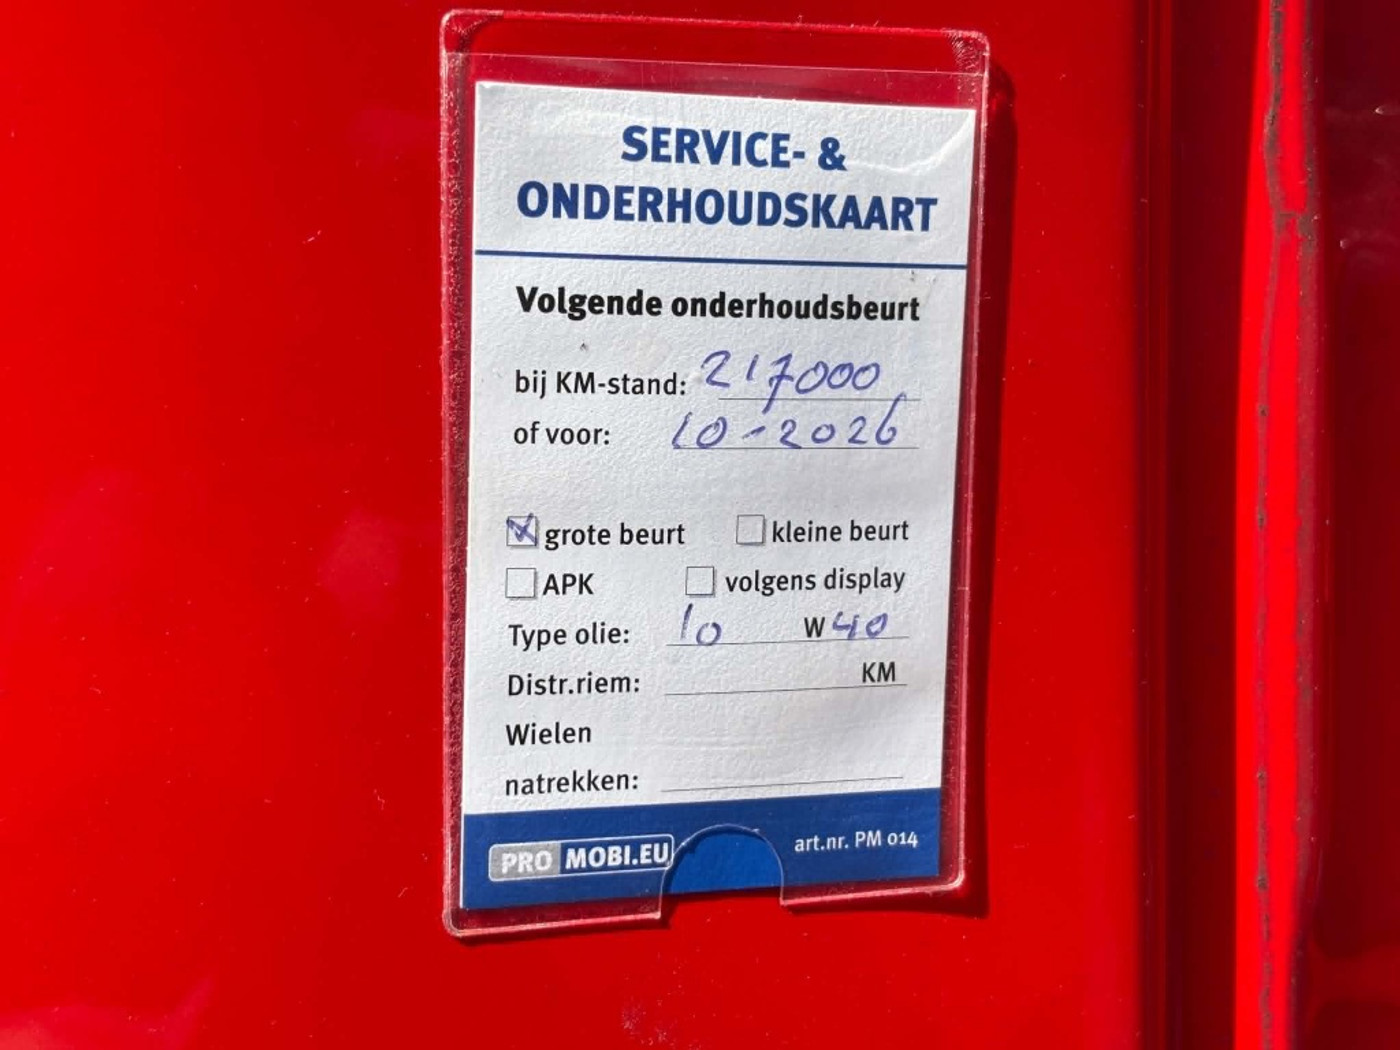 SERVICE- &
ONDERHOUDSKAART
Volgende onderhoudsbeurt
bij KM-stand: 217000
of voor: 10-2026
grote beurt kleine beurt
APK volgens display
Type olie: 10 W 40
Distr.riem: KM
Wielen
natrekken:
PRO MOBI.EU art.nr. PM 014